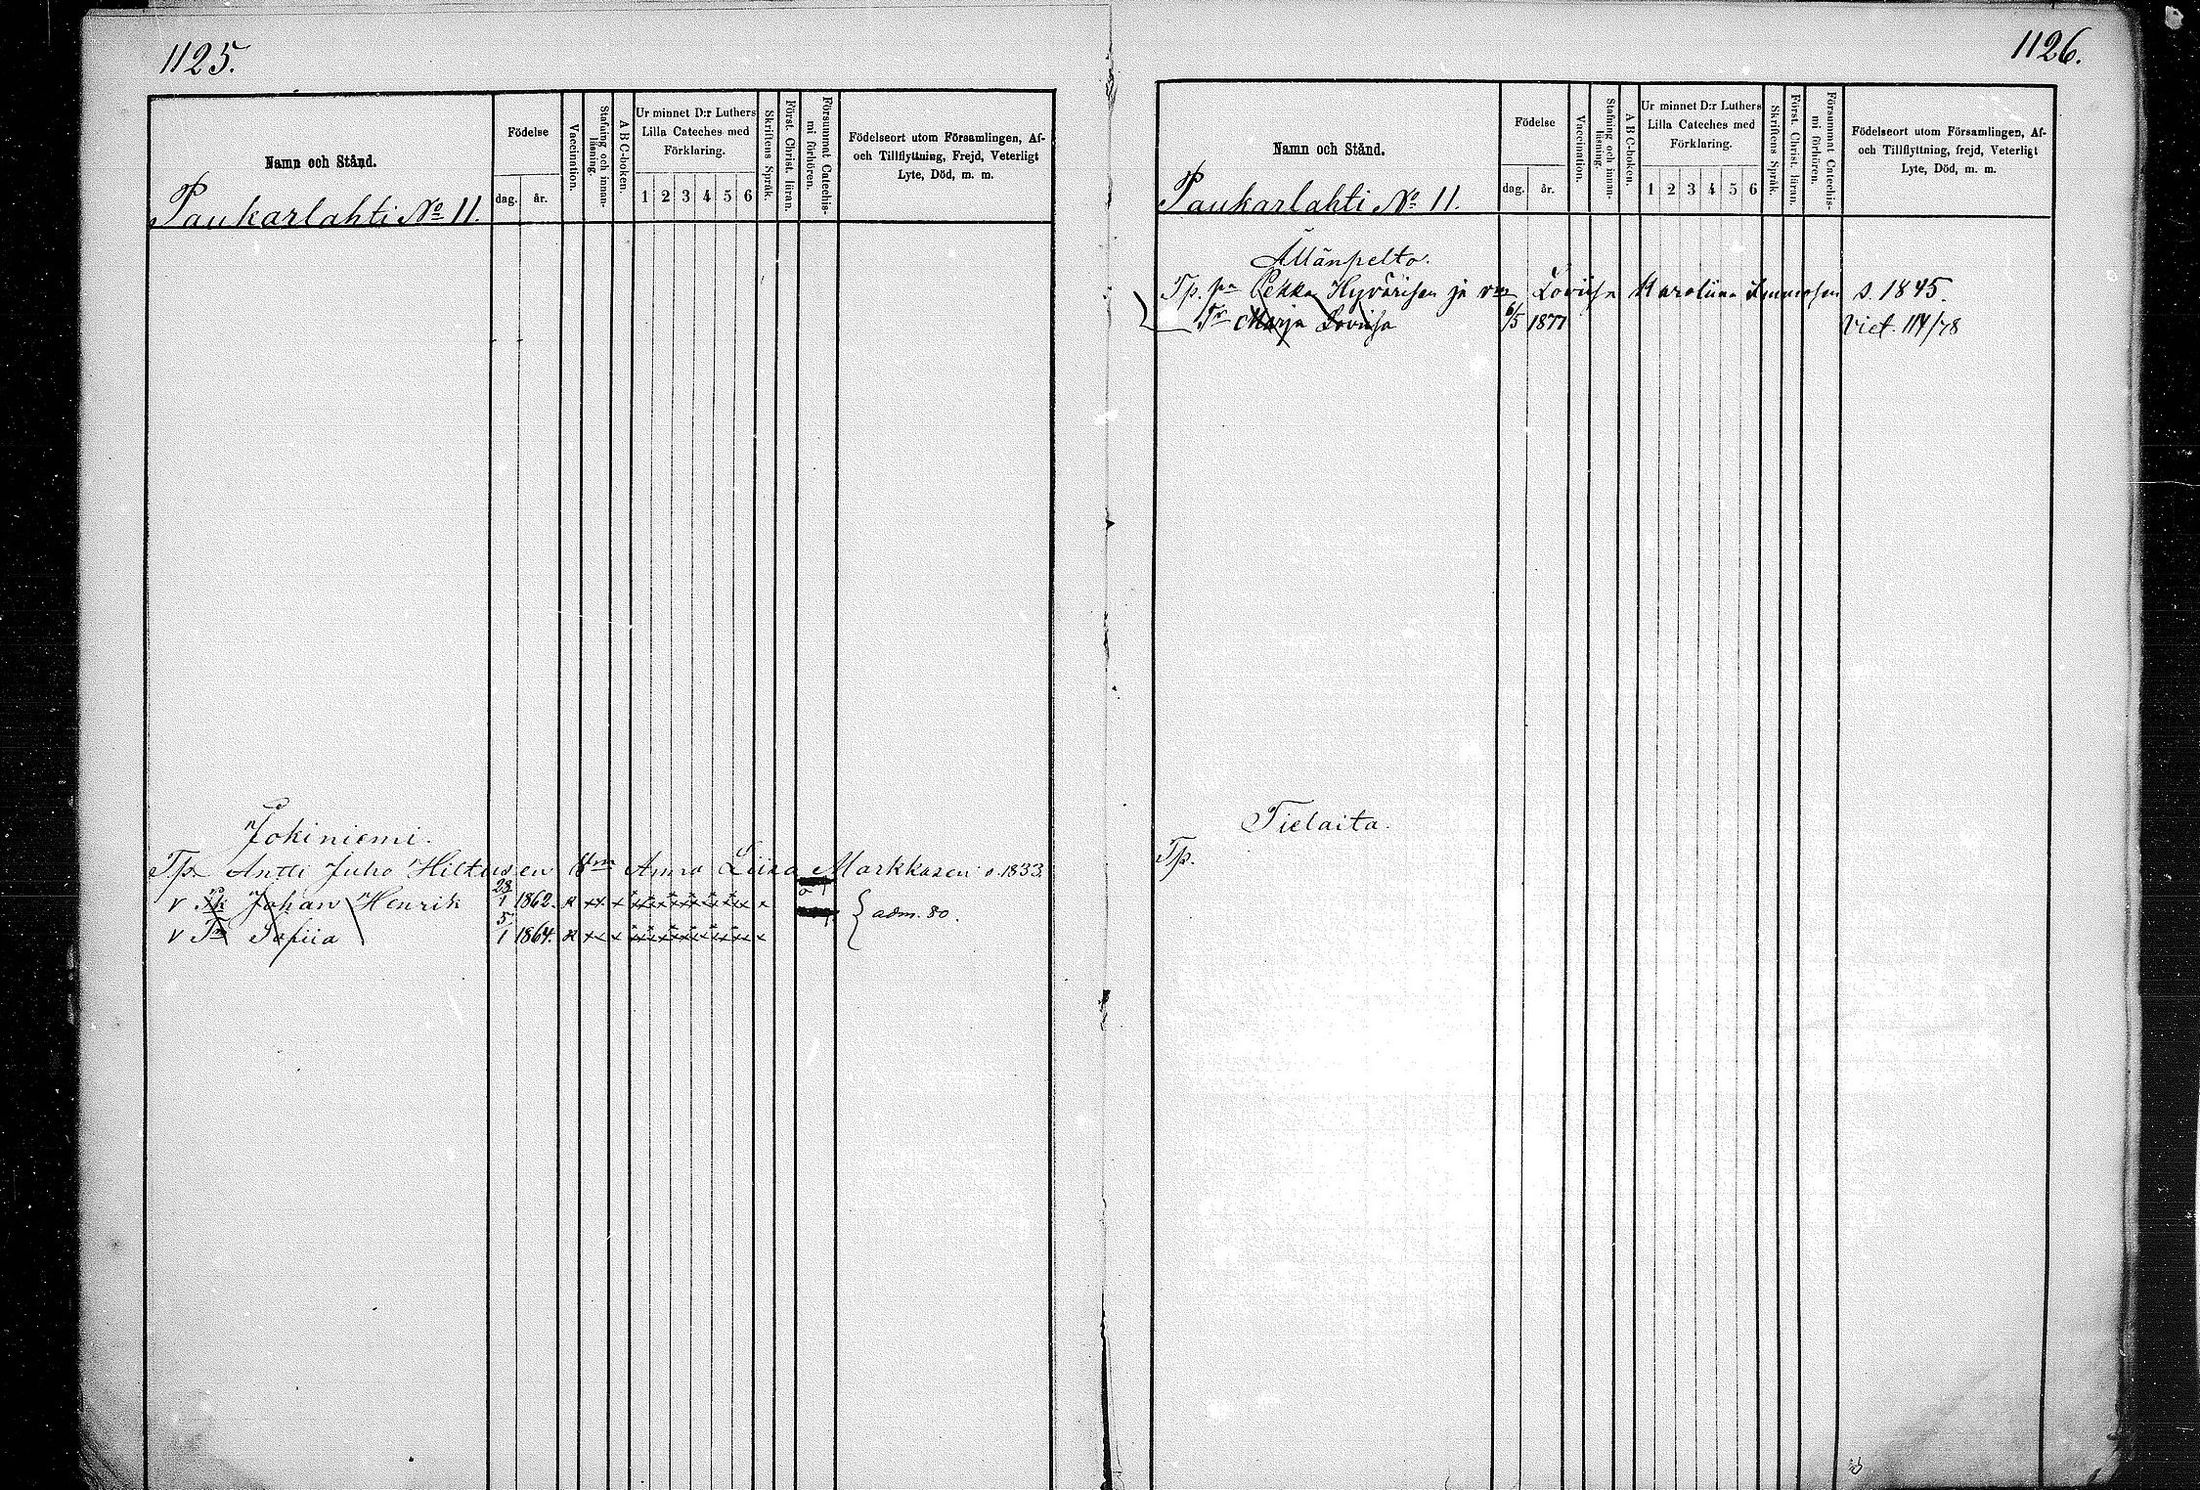 1125.
Namn och Stånd.
Födelse
dag.
år.
Vaccination.
Stafning och innan-
läsning.
A B C-boken.
Ur minnet D:r Luthers
Lilla Cateches med
Förklaring.
1 2 3 4 5 6
Skriftens Språk.
Först. Christ. läran.
Försummat Catechis-
mi förhören.
Födelseort utom Församlingen, Af-
och Tillflyttning, Frejd, Veterligt
Lyte, Död, m. m.
Paukarlahti No 11.
Jokiniemi.
Tp Antti Juho Hiltusen Anna Liisa Markkasen s. 1833.
v Johan Henrik 23/1 1862. x xx x
v Tr Sofiia 5/1 1864. x xx x
adm. 80.
1126.
Namn och Stånd.
Födelse
dag.
år.
Vaccination.
Stafning och innan-
läsning.
A B C-boken.
Ur minnet D:r Luthers
Lilla Cateches med
Förklaring.
1 2 3 4 5 6
Skriftens Språk.
Först. Christ. läran.
Försummat Catechis-
mi förhören.
Födelseort utom Församlingen, Af-
och Tillflyttning, frejd, Veterligt
Lyte, Död, m. m.
Paukarlahti No 11.
Ällänpelto.
Tp. pa Pekka Hyvärisen ja vm Loviisa Karoliina Immosen s. 1845.
Tr Marja Loviisa 6/5 1877 Vict. 114/78
Tielaita.
Tp.